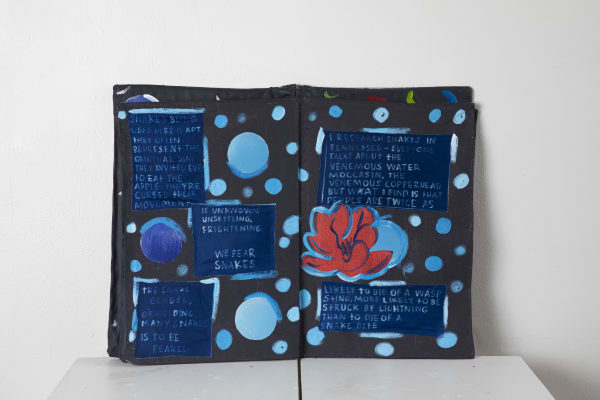 SNAKES BEING
USED HERE IS APT
THEY OFTEN
REPRESENT THE
ORIGINAL SIN.
THEY INVITED EVE
TO EAT THE
APPLE. THEY'RE
CURSED. THEIR
MOVEMENT
IS UNKNOWN
UNSETTLING,
FRIGHTENING.
WE FEAR
SNAKES
THE SNAKE
GENDER,
OR HOLDING
MANY SNAKES
IS TO BE
FEARED
I RESEARCH SNAKES IN
TENNESSEE - EVERYONE
TALKS ABOUT THE
VENEMOUS WATER
MOCCASIN, THE
VENEMOUS COPPERHEAD
BUT WHAT I FIND IS THAT
PEOPLE ARE TWICE AS
LIKELY TO DIE OF A WASP
STING, MORE LIKELY TO BE
STRUCK BY LIGHTNING
THAN TO DIE OF A
SNAKE BITE